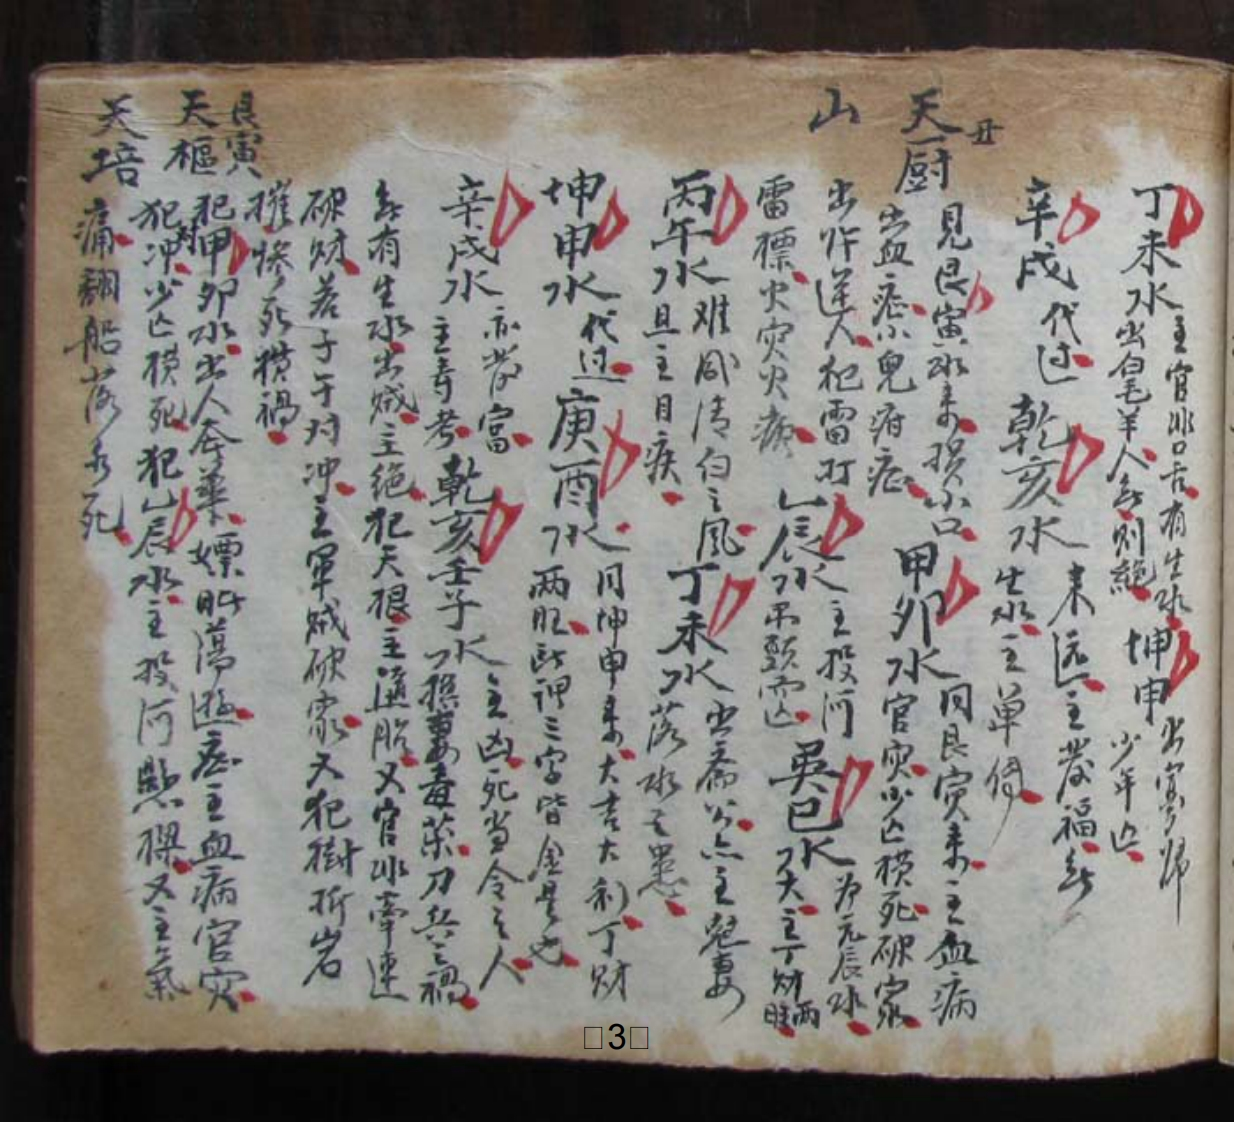 丁未水主官非口舌有生水坤申
出白毛羊人 則絕 少年亡
辛戌代过乾亥水來远主發福
生水主单
天厨丑
山
見艮寅水來损小口甲卯水同艮寅來主血病
出血症小兒疳症 官灾少亡横死破家
出忤逆人犯雷打乙辰水主投河 巽巳水為元辰水
雷摽火灾火 大主丁财两旺
丙午水难 清白之風丁未水出斋公亦主 妻
且主目疾 落水之患
坤申水代过庚酉水同坤申來大吉大利丁财
两旺 三字皆金是也
辛戌水亦發富 乾亥壬子水主凶死当令之人
主寿考 损妻毒药刀兵之禍
有生水出贼主绝犯天根主 胎又官非牵連
破财若子午对冲主軍贼破家又犯樹折岩
摧惨死横禍
艮寅
天樞犯甲卯水出人 嫖 蕩 主血病官灾
犯冲少亡横死犯乙辰水主投河懸樑又主氣
天培痛翻船落水死
3